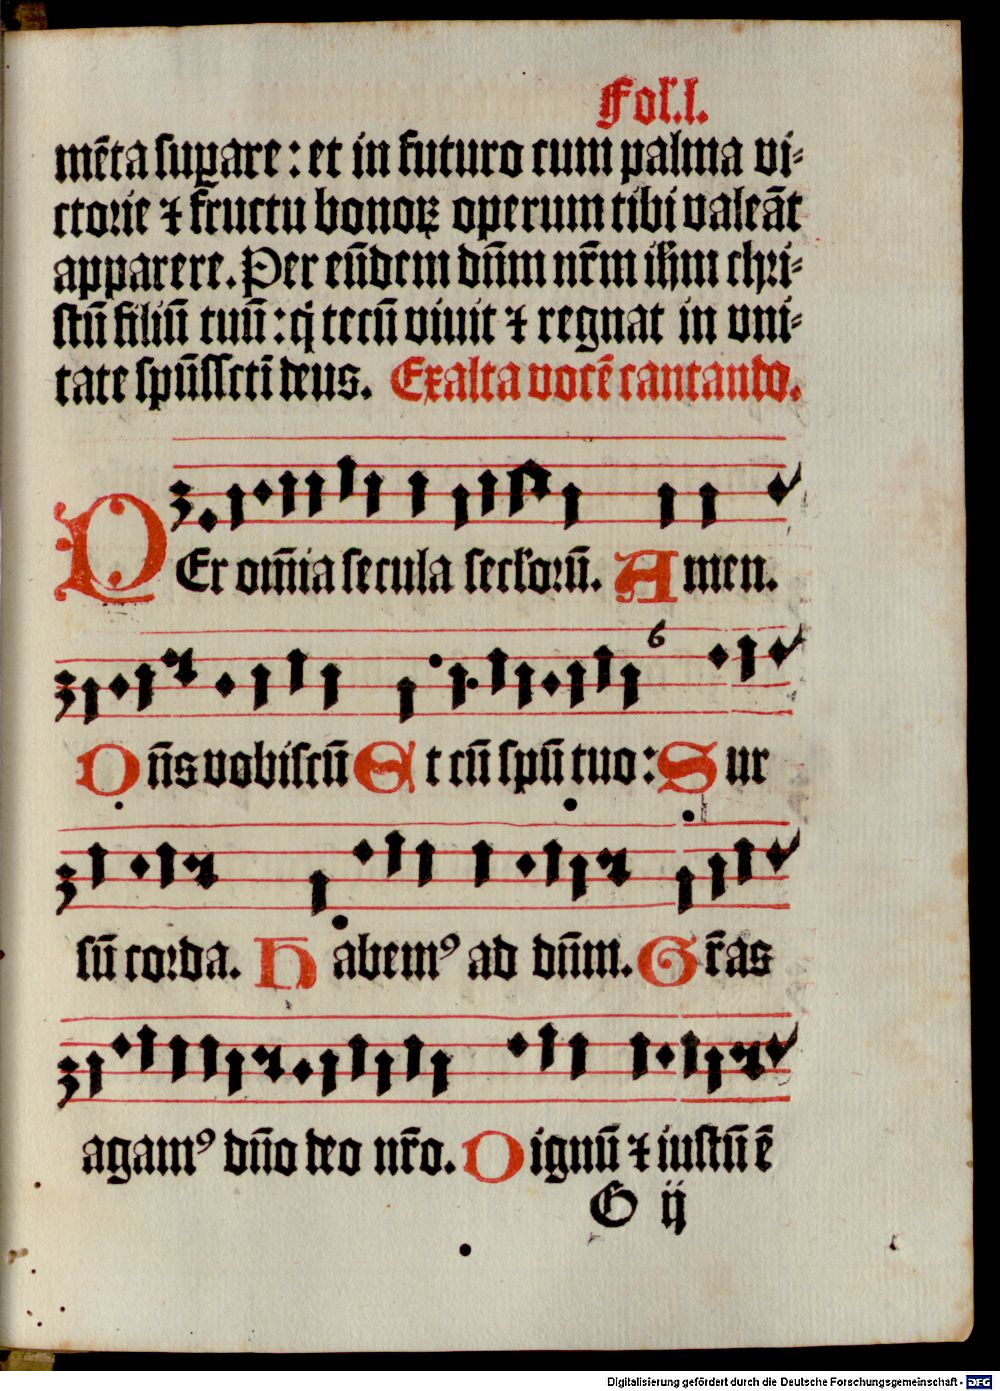 Fol. l.
mēta suꝑare: et in futuro cum palma vi⸗
ctorie ⁊ fructu bonoꝝ operum tibi valeāt
apparere. Per eūdem dn̄m nr̄m ihm chri⸗
stū filiū tuū: qͥ tecū viuit ⁊ regnat in vni⸗
tate spūssctī deus. Exalta vocē cantando.
PEr om̄ia secula seclorū. Amen.
6
Dn̄s vobiscū Et cū spū tuo: Sur
sū corda. Habemꝰ ad dn̄m. Gr̄as
agamꝰ dn̄o deo nr̄o. Dignū ⁊ iustū ē
G ij
Digitalisierung gefördert durch die Deutsche Forschungsgemeinschaft - DFG